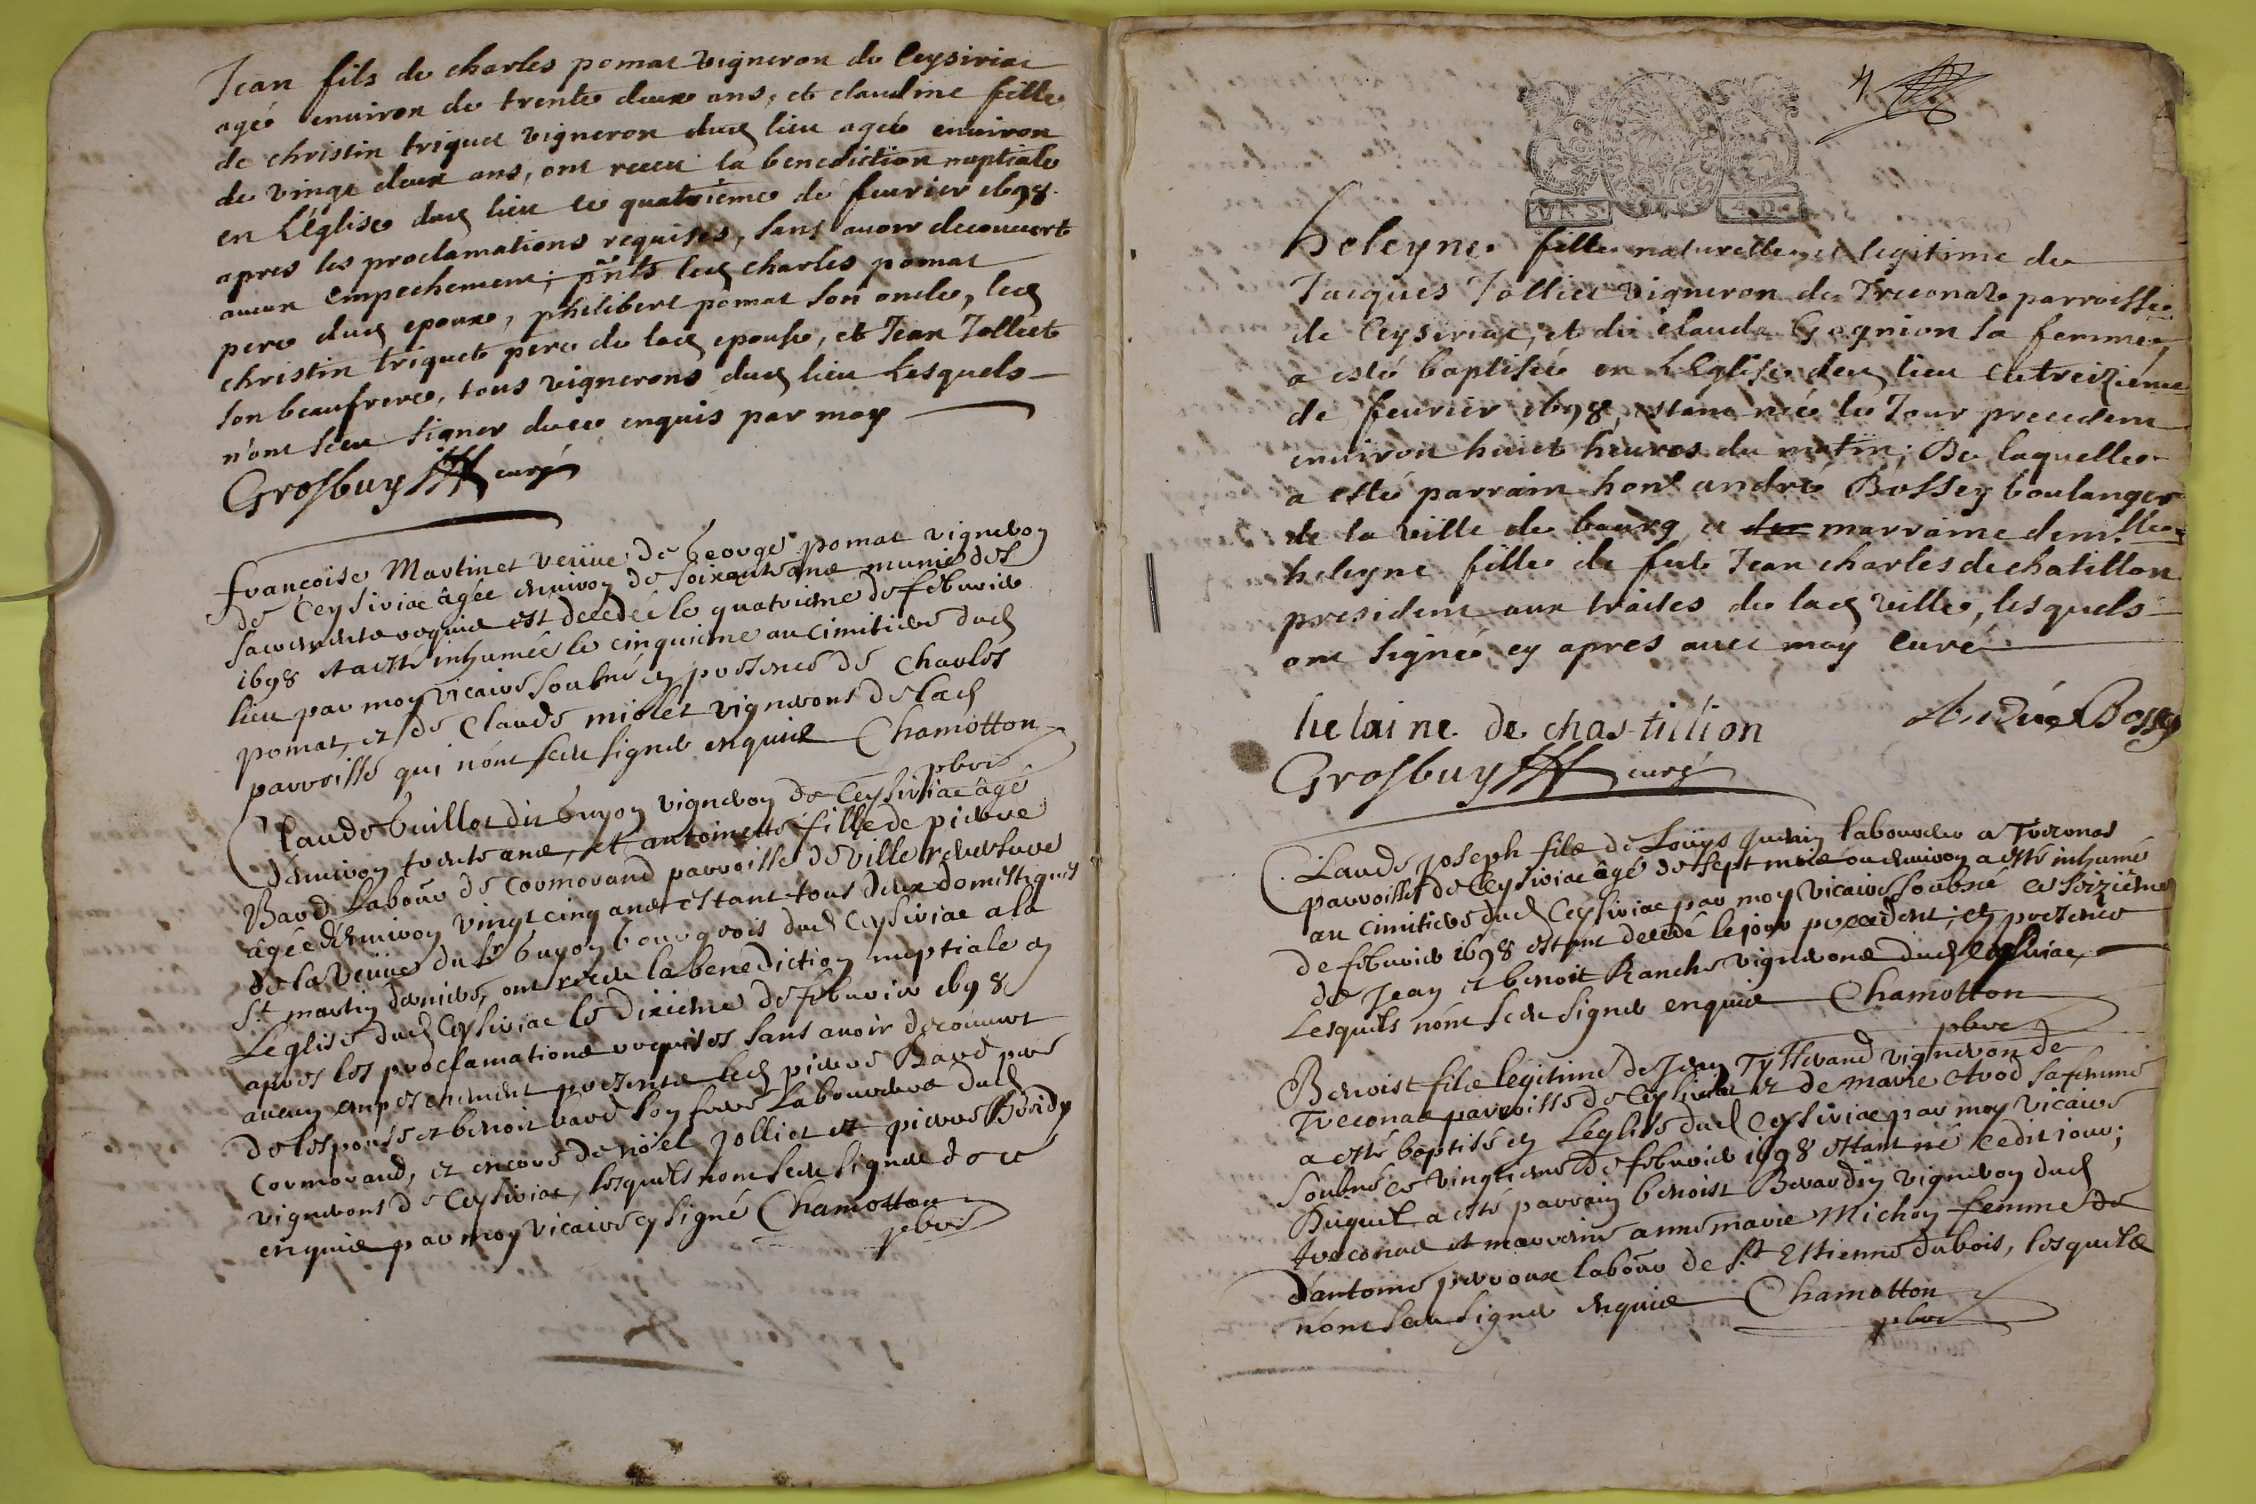 Jean fils de charles pomat vigneron de Ceysiriac
agée enuiron de trente deux ans, et claudine fille
de christin triquet vigneron dud lieu agée enuiron
de vingt deux ans, ont receu la benediction nuptiale
en L'église dud lieu ce quatrieme de feurier 1698
apres les proclamations requises, sans auoir decouuert
aucun empechement; pnts led charles pomat
pere dud epoux, philibert pomat son oncle, led
christin triquet pere de lad epouse, et Jean Jolliet
son beaufrere, tous vignerons dud lieu Lesquels
n'ont sceu signer de ce enquis par moy
Grosbuy curé
francoise Martinet veüue de George pomat vigneron
de Ceysiriac âgée enuiron de soixante ans munie des
sacrements requis est decedée le quatrieme de feburier
1698 et a esté inhumée le cinquieme au cimitiere dud
lieu par moy vicaire soubné en presence de Charles
pomat, et de Claude miolet vignerons de lad
parroisse qui n'ont sceu signer enquis Chamotton
pbre
Claude Guillot dit Guyon vigneron de Ceysiriac âgé
d'enuiron trente ans, et antoinette fille de pierre
Bard Labour de Cormorand parroisse de ville reuersure
âgée d'enuiron vingt cinq ans estant tous deux domestiques
de la veüue du Sr Guyon bourgeois dud Ceysiriac a la
St martin derniere, ont receu la benediction nuptiale en
Léglise dud Ceysiriac le dixieme de feburier 1698
apres les proclamations requises sans auoir decouuert
aucun empeschement presents led pierre Bard pere
de l'espouse et benoit bard son frere Laboureurs dud
Cormorand, et encore de noël Jolliet et pierre
vignerons de Ceysiriac, lesquels n'ont sceu signer de ce
enquis par moy vicaire cy signé Chamotton
pbre
4
UN S. 4 D.
heleyne fille naturelle et legitime de
Jacques Jolliet vigneron de Treconaz parroisse
de Ceysiriac, et de claude Gognion sa femme,
a esté baptisée en L'Eglise dud lieu ce treizieme
de feurier 1698, estant née le Jour precedent
enuiron huict heures du matin; De laquelle
a esté parrain hont andré Bossey boulanger
de la ville de bourg, et marraine demlle
heleyne fille de feu Jean charles de chatillon
president aux traites de lad ville, lesquels
ont signé cy apres auec moy curé
helaine de chastillion André Bossey
Grosbuy curé
Claude Joseph fils de Loüys laboureur a Treconas
parroisse de Ceysiriac âgé de sept mois ou enuiron a esté inhumé
au cimitiere dud Ceysiriac par moy vicaire soubné ce seizième
de feburier 1698 estant decedé le jour precedent; en presence
de Jean et benoit Ranche vignerons dud Ceysiriac,
Lesquels n'ont sceu signer enquis Chamotton
pbre
Benoist fils legitime de Jean Tysserand vigneron de
Treconas parroisse de Ceysiriac et de marie sa femme
a esté baptisé en Léglise dud Ceysiriac par moy vicaire
soubné ce vingtieme de feburier 1698 estant né ledit jour;
Duquel a esté parrain benoist Berardin vigneron dud
treconas et marraine anne marie Michon femme de
d'antoine perroux labour de St Estienne dubois, lesquels
n'ont sceu signer enquis Chamotton
pbre